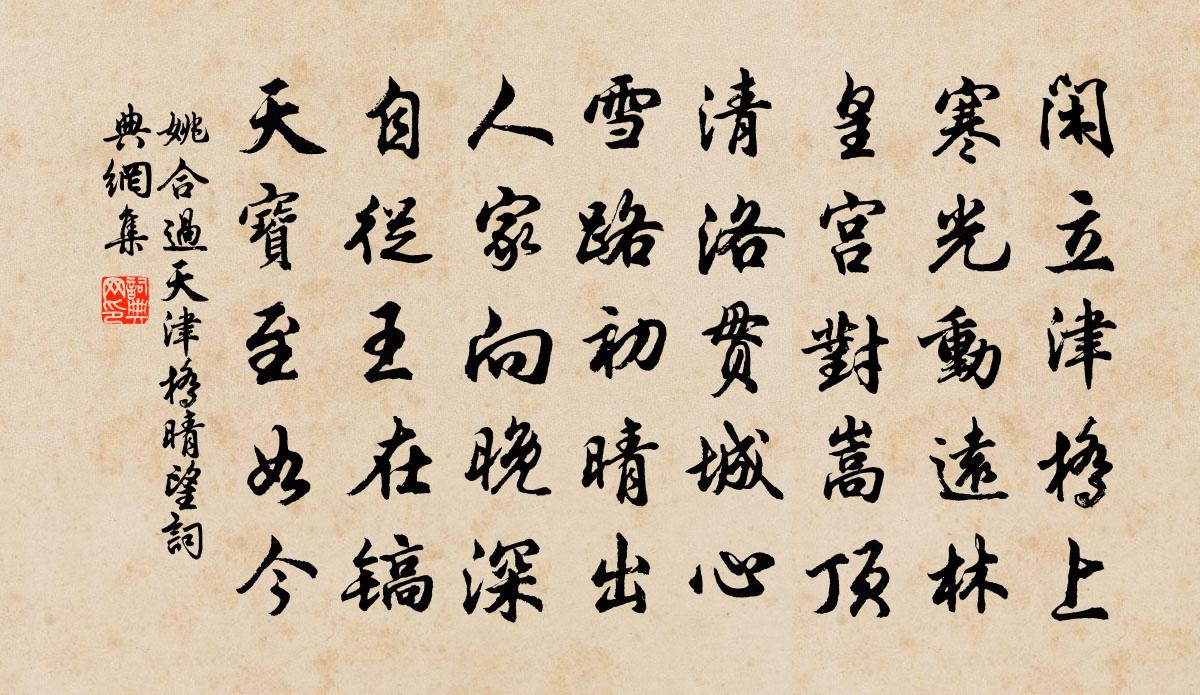 閑立津橋上
寒光動遠林
皇宫對嵩頂
清洛贯城心
雪路初晴出
人家向晚深
自從王在镐
天寶至如今
姚合過天津橋晴望詞
典網集
詞典
网印